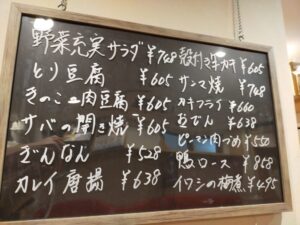 野菜充実サラダ ¥748
とり豆腐 ¥605
きのこ肉豆腐 ¥605
サバの開き焼 ¥605
ぎんなん ¥528
カレイ唐揚 ¥638
殻付き生カキ ¥605
サンマ焼 ¥748
カキフライ ¥660
おでん ¥638
ピーマン肉づめ ¥550
鴨ロース ¥858
イワシの梅煮 ¥495